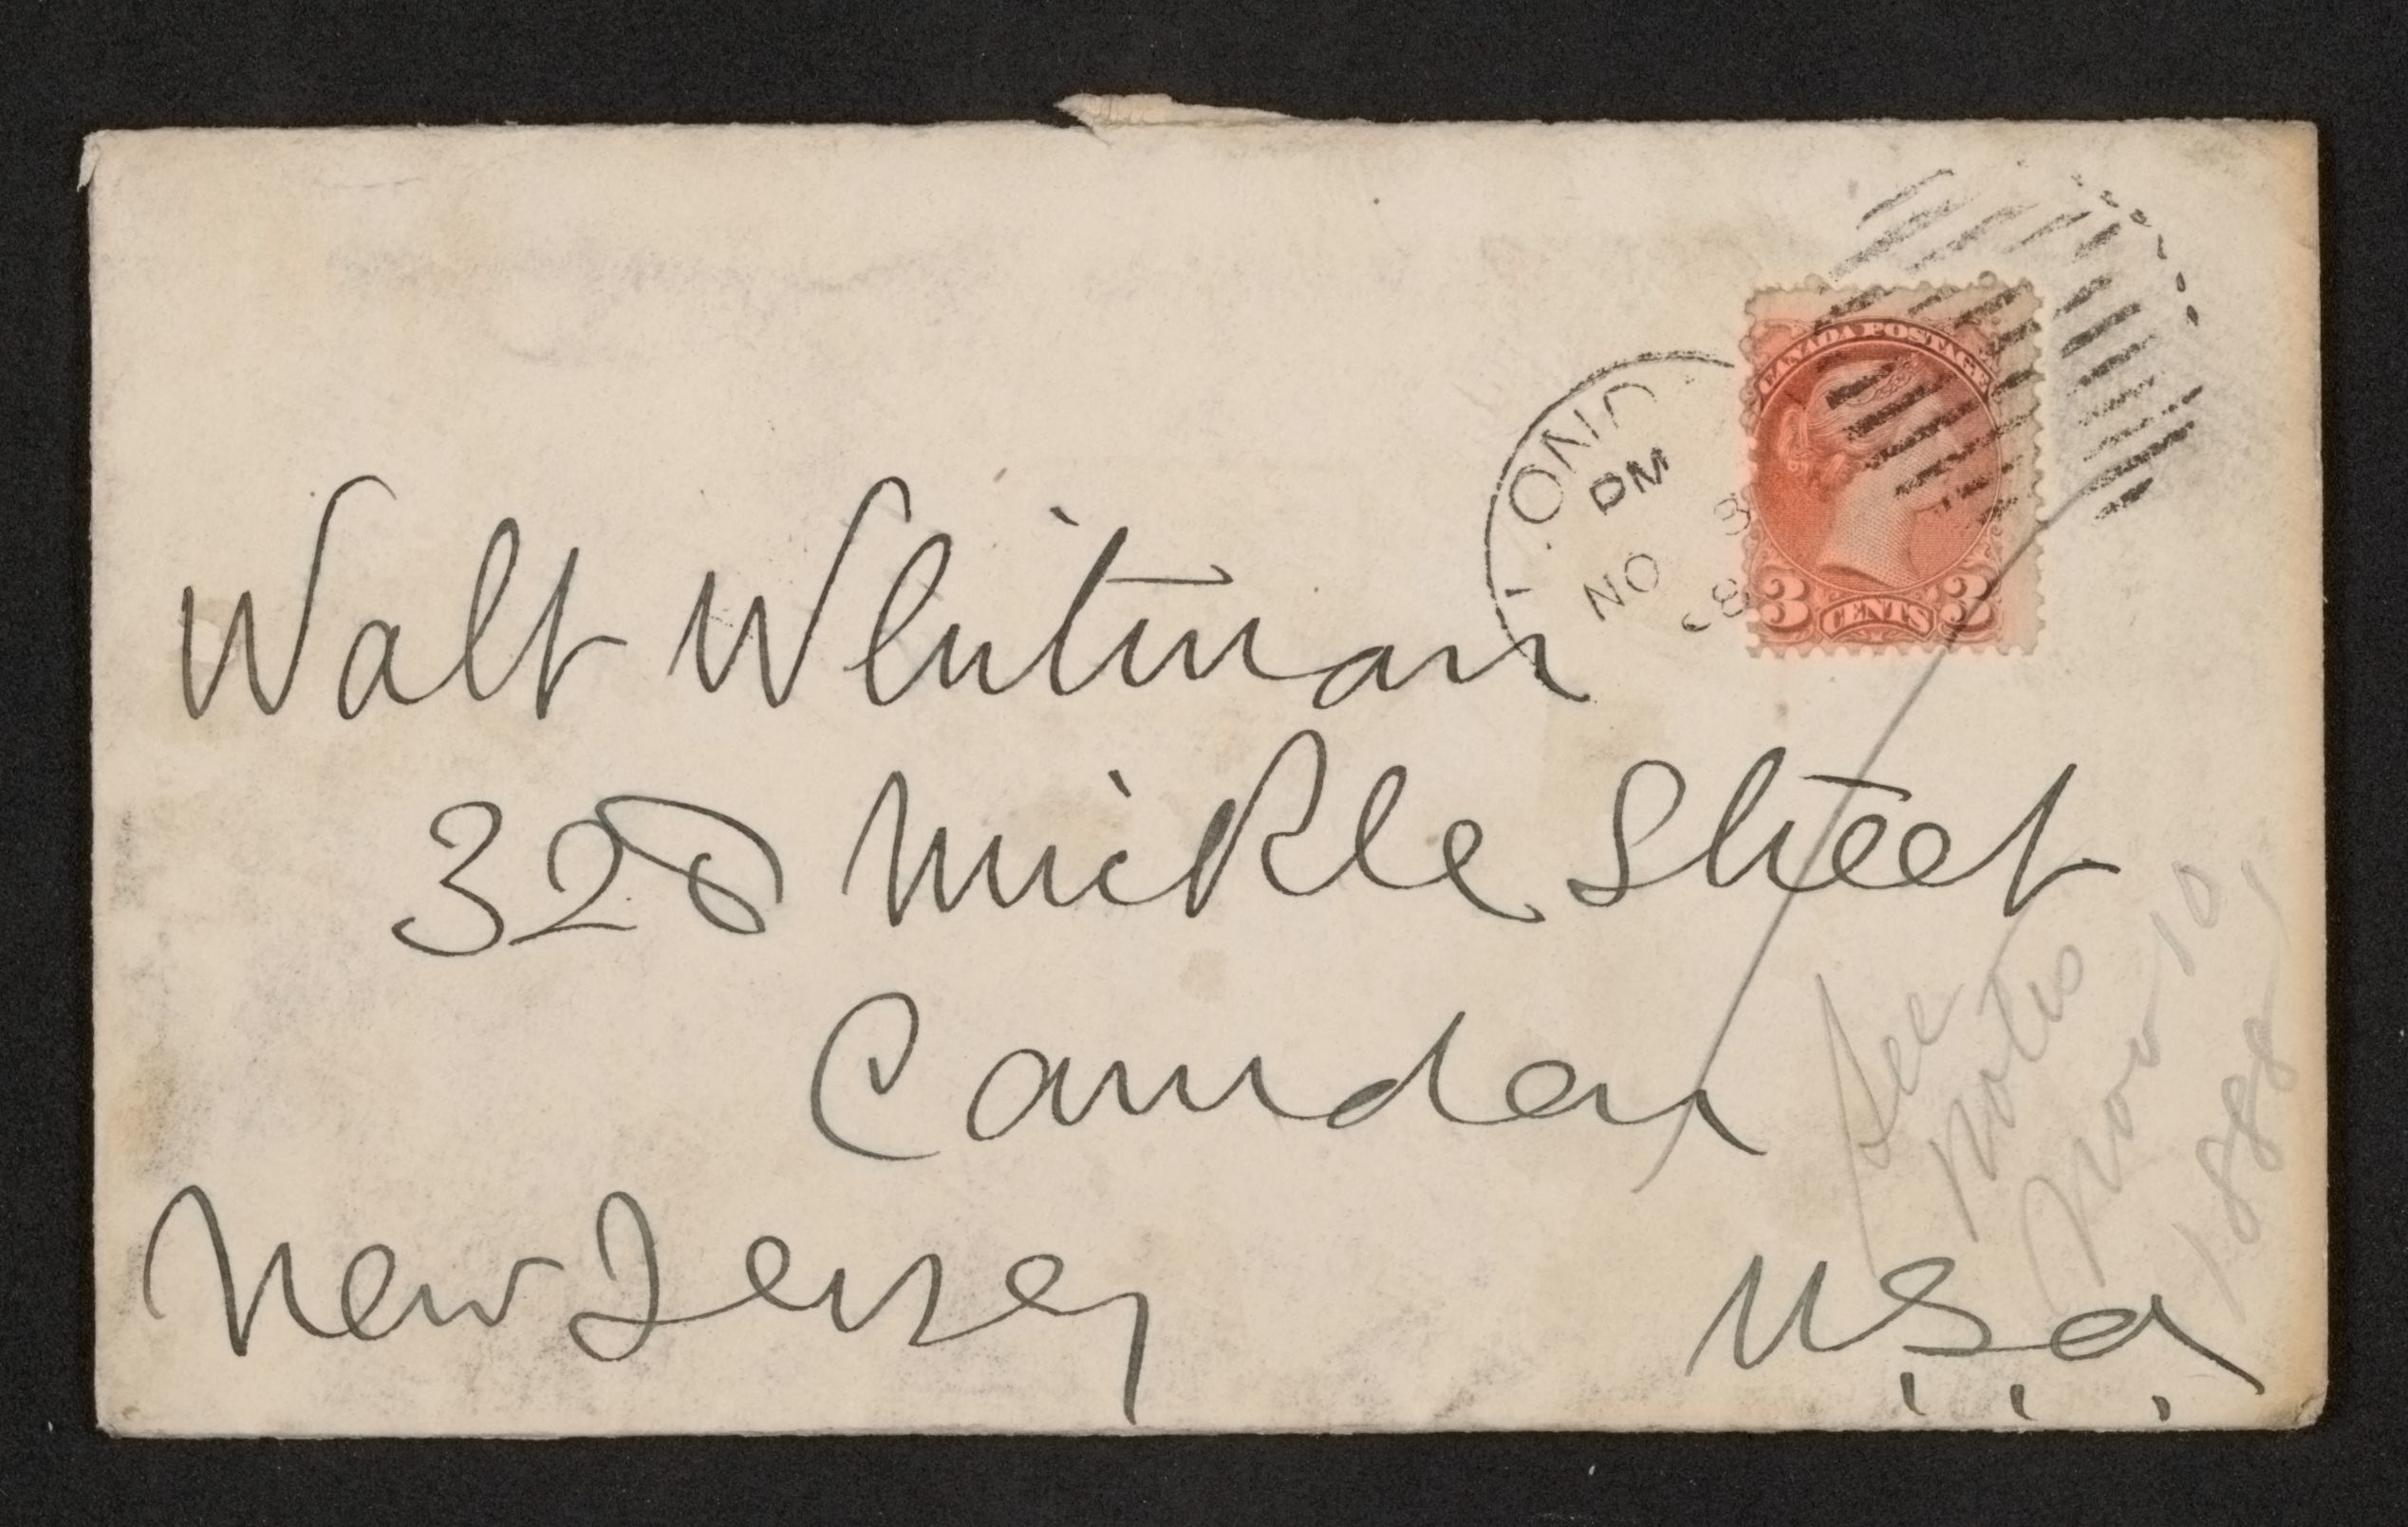 CANADA POSTAGE
3 CENTS 3
LOND
PM
NO 8
88
Walt Whitman
328 Mickle Street
Camden
New Jersey
U.S.A.
See
notes
Nov 10
1888